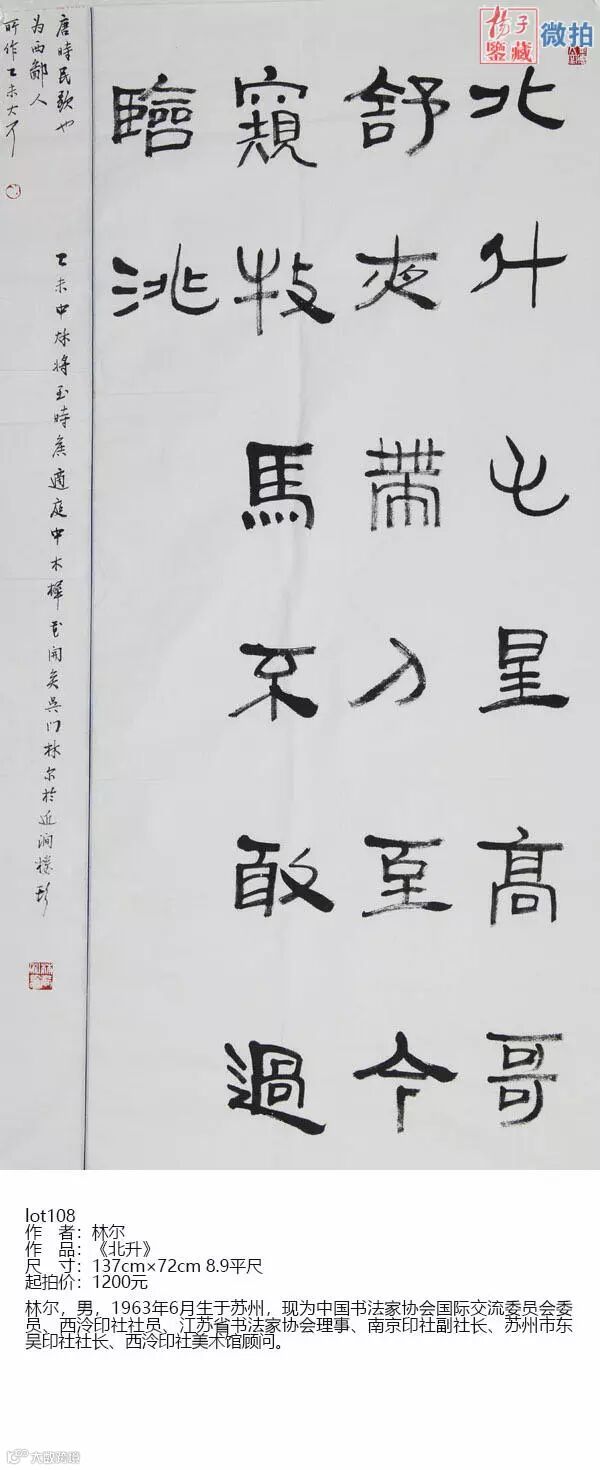 楊子
鑒藏
微拍
北斗七星高哥
舒夜帶刀至今
窺牧馬不敢過
臨洮
唐時民歌也
為西鄙人
所作乙未大
乙未中秋將至時適庭中木樨花開矣吳門林尔於近樓
lot108
作 者：林尔
作 品：《北升》
尺 寸：137cm×72cm 8.9平尺
起拍价：1200元
林尔，男，1963年6月生于苏州，现为中国书法家协会国际交流委员会委
员、西泠印社社员、江苏省书法家协会理事、南京印社副社长、苏州市东
吴印社社长、西泠印社美术馆顾问。
大数跨境